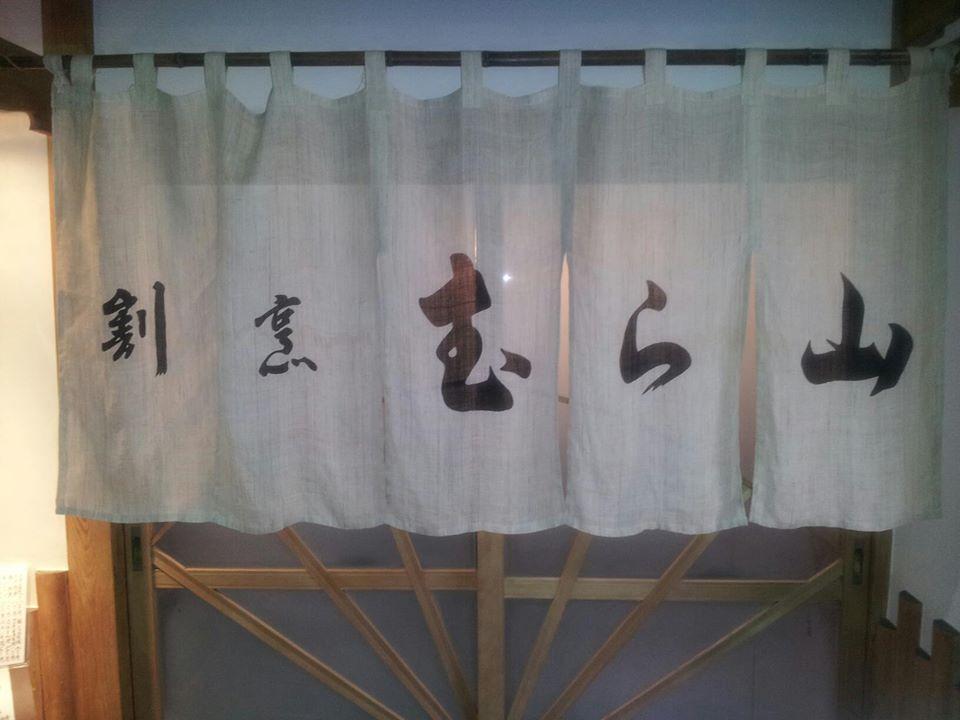 割烹 むら山